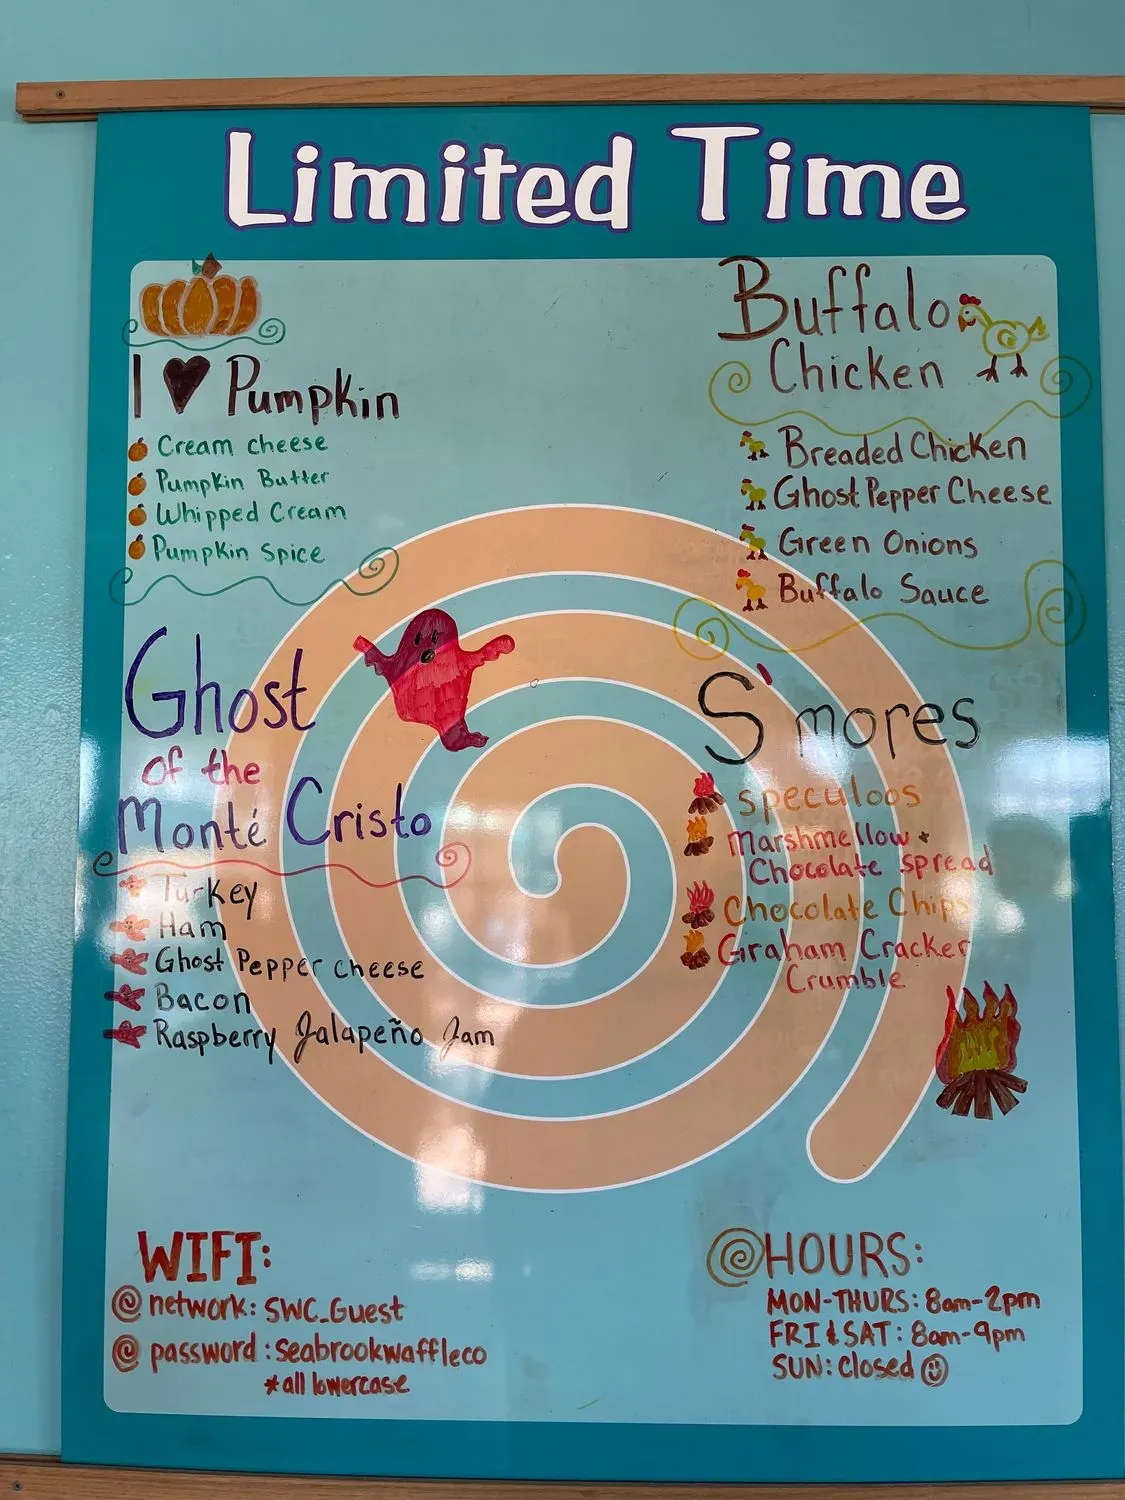 Limited Time
I ♥ Pumpkin
Cream cheese
Pumpkin Butter
Whipped Cream
Pumpkin Spice
Ghost
of the
Monté Cristo
Turkey
Ham
Ghost Pepper cheese
Bacon
Raspberry Jalapeño Jam
Buffalo
Chicken
Breaded Chicken
Ghost Pepper Cheese
Green Onions
Buffalo Sauce
S'mores
speculoos
Marshmellow +
Chocolate spread
Chocolate Chips
Graham Cracker
Crumble
WIFI:
network: SWC_Guest
password: seabrookwaffleco
*all lowercase
HOURS:
MON-THURS: 8am-2pm
FRI & SAT: 8am-9pm
SUN: closed